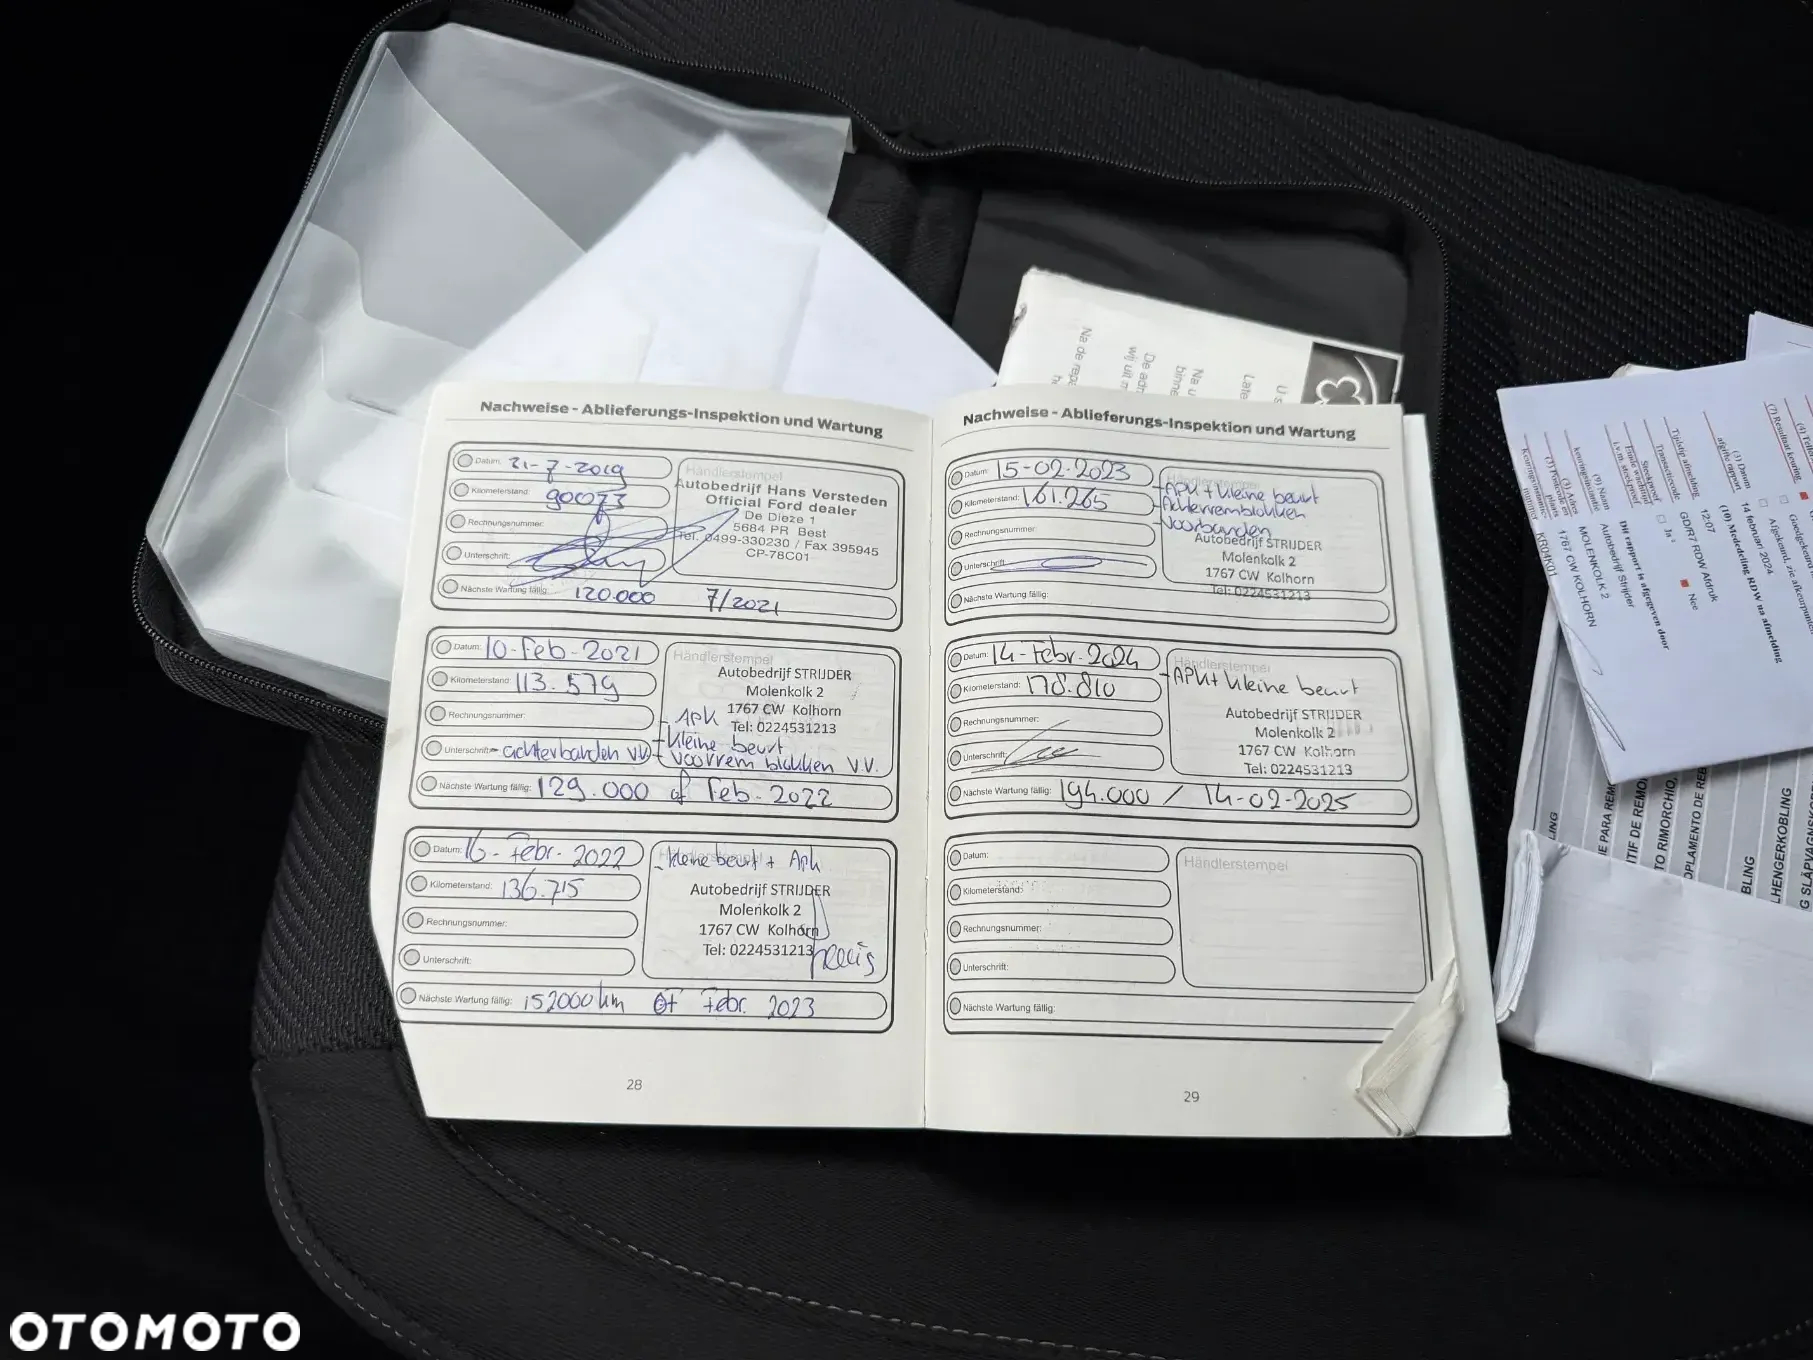 Nachweise - Ablieferungs-Inspektion und Wartung
Datum: 21-7-2019
Kilometerstand: 90073
Rechnungsnummer:
Unterschrift:
Nächste Wartung fällig: 120.000 7/2021
Händlerstempel
Autobedrijf Hans Versteden
Official Ford dealer
De Dieze 1
5684 PR Best
Tel. 0499-330230 / Fax 395945
CP-78C01
Datum: 10-Feb-2021
Kilometerstand: 113.579
Rechnungsnummer:
Unterschrift: - achterbanden v.v.
Nächste Wartung fällig: 129.000 of Feb-2022
Händlerstempel
Autobedrijf STRIJDER
Molenkolk 2
1767 CW Kolhorn
Tel: 0224531213
- APK
- kleine beurt
- voorremblokken v.v.
Datum: 16-Febr-2022
Kilometerstand: 136.715
Rechnungsnummer:
Unterschrift:
Nächste Wartung fällig: 152000 km of Febr. 2023
- kleine beurt + APK
Autobedrijf STRIJDER
Molenkolk 2
1767 CW Kolhorn
Tel: 0224531213
28
Nachweise - Ablieferungs-Inspektion und Wartung
Datum: 15-02-2023
Kilometerstand: 161.265
Rechnungsnummer:
Unterschrift:
Nächste Wartung fällig:
- APK + kleine beurt
- Achterremblokken
- Voorbanden
Autobedrijf STRIJDER
Molenkolk 2
1767 CW Kolhorn
Tel: 0224531213
Datum: 14-Febr-2024
Kilometerstand: 178.810
Rechnungsnummer:
Unterschrift:
Nächste Wartung fällig: 194.000 / 14-02-2025
Händlerstempel
- APK + kleine beurt
Autobedrijf STRIJDER
Molenkolk 2
1767 CW Kolhorn
Tel: 0224531213
Datum:
Kilometerstand:
Rechnungsnummer:
Unterschrift:
Nächste Wartung fällig:
Händlerstempel
29
Na de
wij uit
(10) Mededeling RDW na afmelding
14 februari 2024
12:07
GD/R7 RDW Afdruk
Ja
Nee
Dit rapport is afgegeven door
Autobedrijf Strijder
MOLENKOLK 2
1767 CW KOLHORN
KR04K01
OTOMOTO